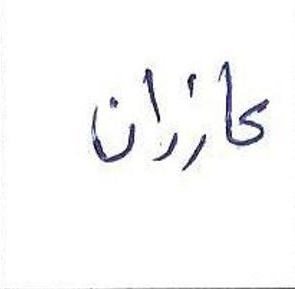 عازران